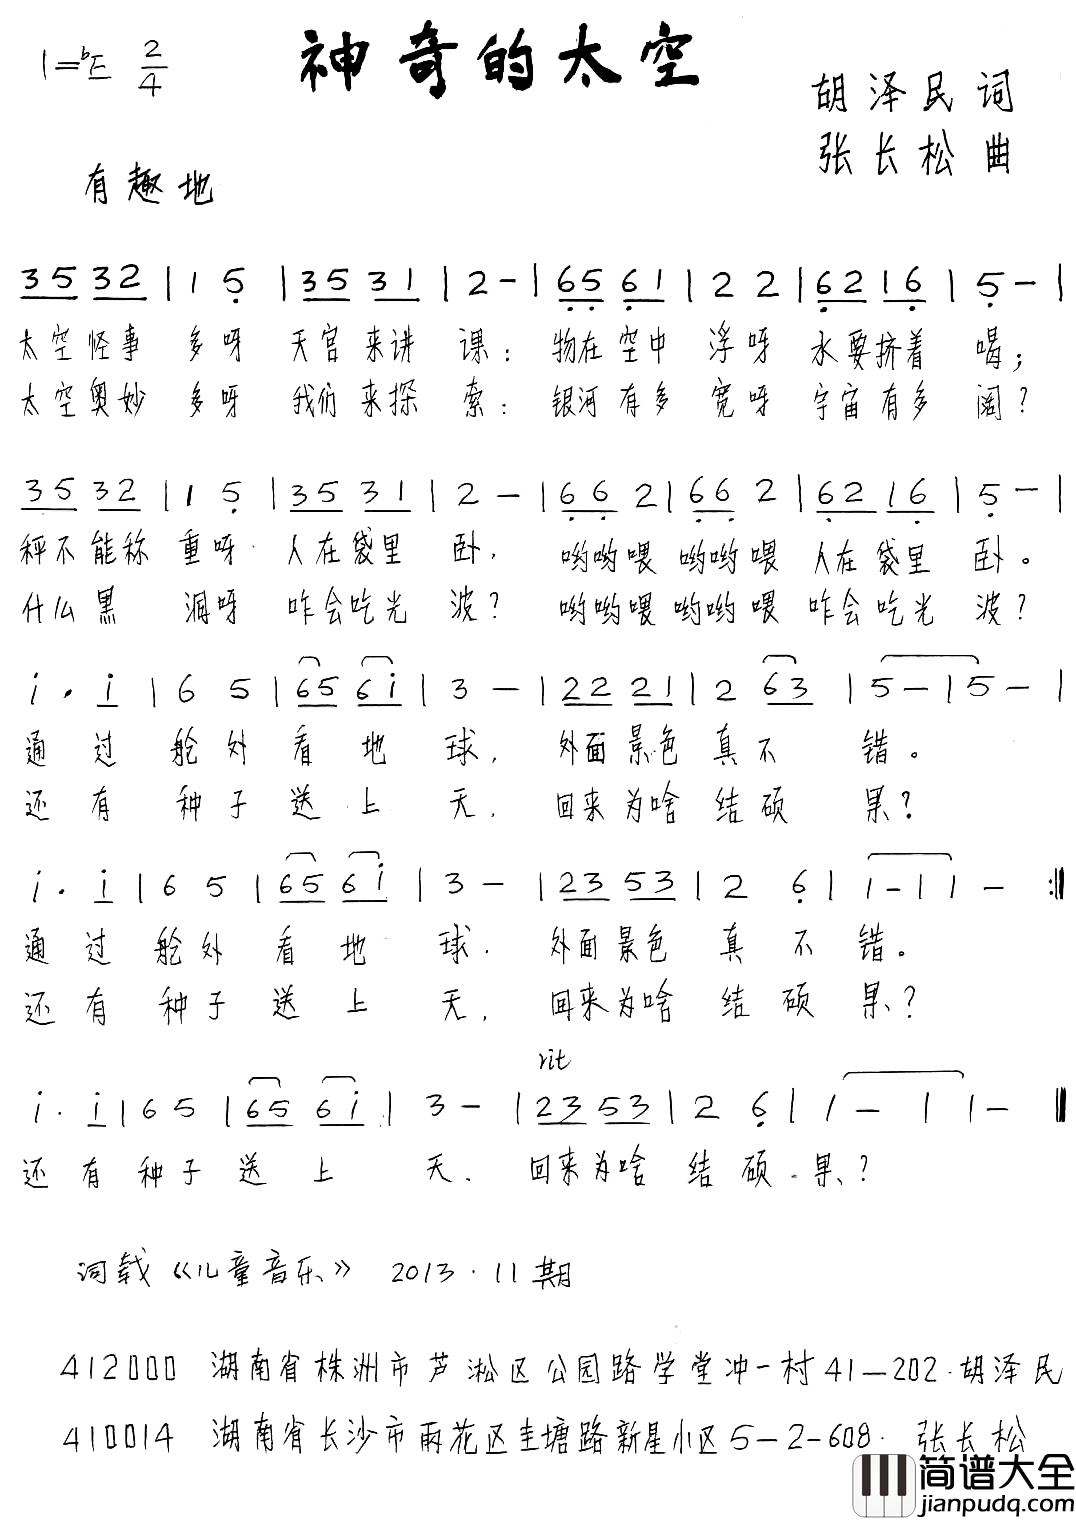 1=♭E 2/4
神奇的太空
胡泽民词
张长松曲
有趣地
3532|15|3531|2-|6561|22|6216|5-|
太空怪事 多呀 天宫来讲 课: 物在空中 浮呀 水要挤着 喝;
太空奥妙 多呀 我们来探 索: 银河有多 宽呀 宇宙有多 阔?
3532|15|3531|2-|662|662|6216|5-|
秤不能称 重呀. 人在袋里 卧, 哟哟喂 哟哟喂 人在袋里 卧。
什么黑 洞呀 咋会吃光 波? 哟哟喂 哟哟喂 咋会吃光 波?
i·i|65|656i|3-|2221|263|5-|5-|
通过 舱外 看地 球, 外面景色 真不 错。
还有 种子 送上 天, 回来为啥 结硕 果?
i·i|65|656i|3-|2353|26|1-|1 1-:||
通过 舱外 看地 球. 外面景色 真不 错。
还有 种子 送上 天, 回来为啥 结硕 果?
rit
i·i|65|656i|3-|2353|26|1-|1|1-||
还有 种子 送上 天. 回来为啥 结硕. 果?
词载《儿童音乐》 2013·11期
412000 湖南省株洲市芦淞区公园路学堂冲一村41—202·胡泽民
410014 湖南省长沙市雨花区圭塘路新星小区5-2-608· 张长松
简谱大全
jianpudq.com